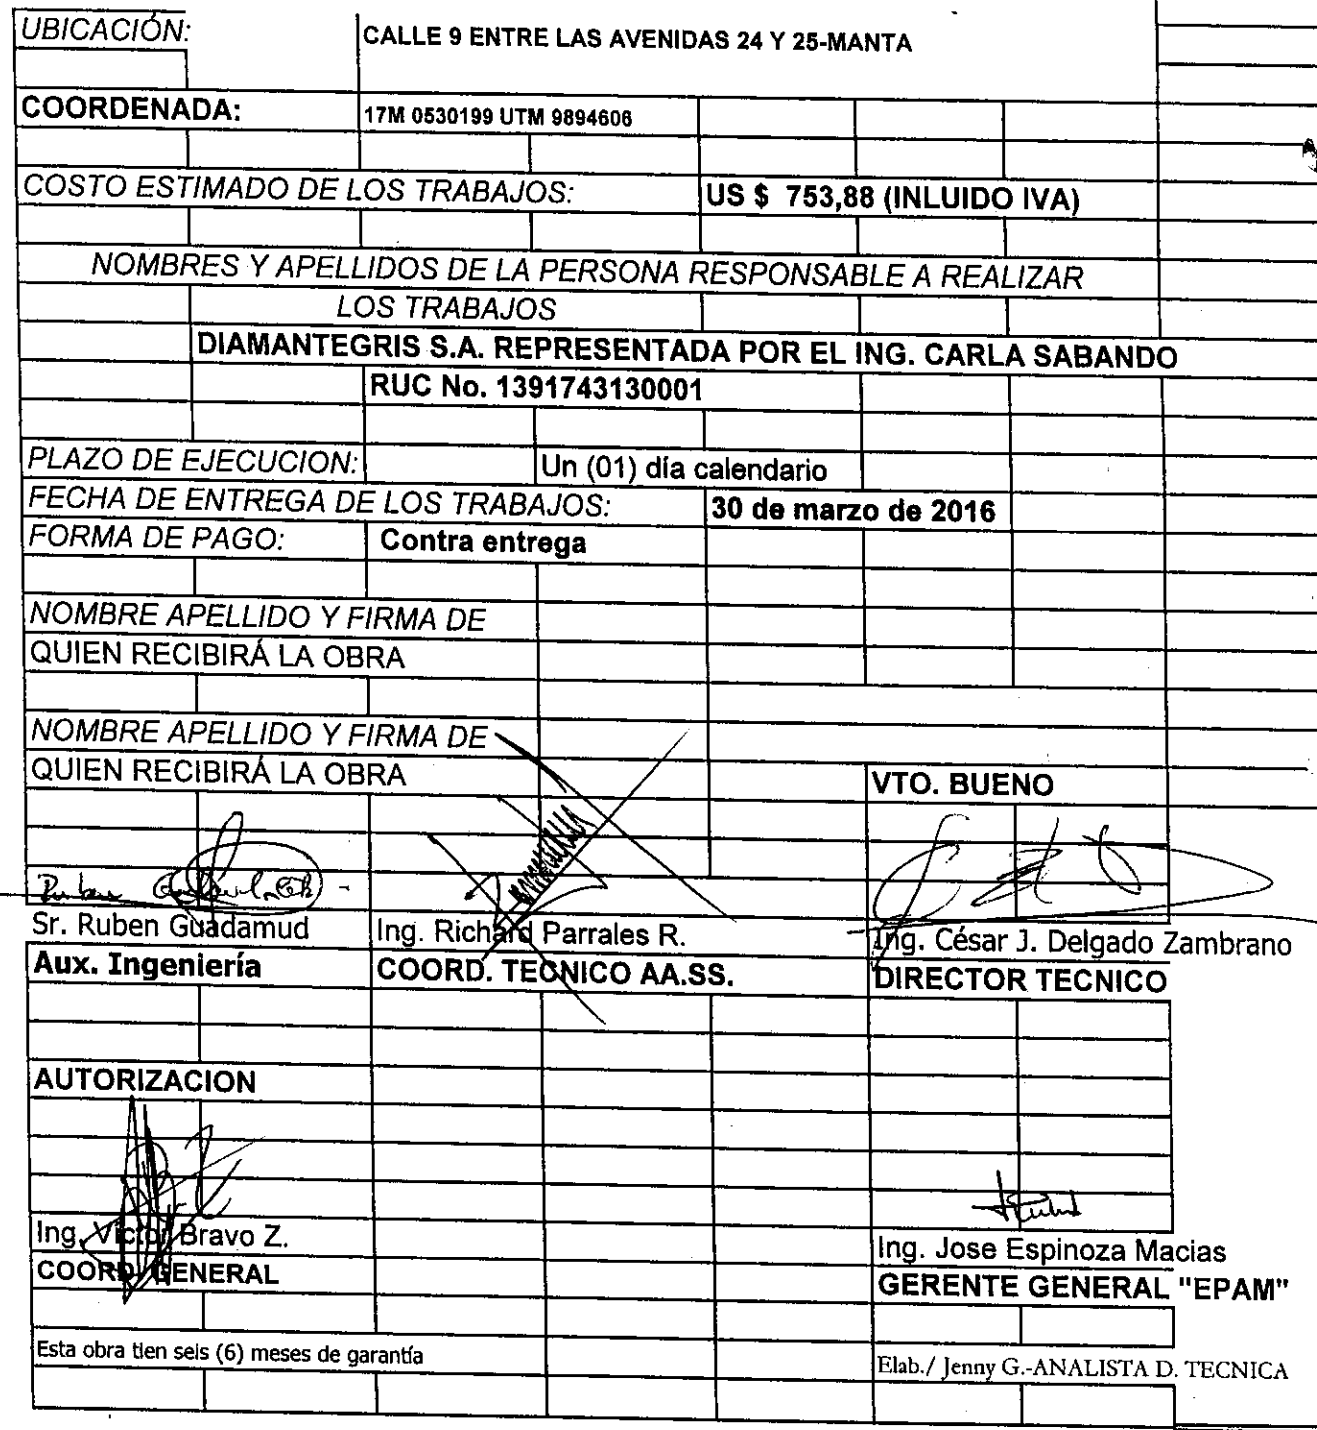 UBICACIÓN: CALLE 9 ENTRE LAS AVENIDAS 24 Y 25-MANTA
COORDENADA: 17M 0530199 UTM 9894606
COSTO ESTIMADO DE LOS TRABAJOS: US $ 753,88 (INLUIDO IVA)
NOMBRES Y APELLIDOS DE LA PERSONA RESPONSABLE A REALIZAR
LOS TRABAJOS
DIAMANTEGRIS S.A. REPRESENTADA POR EL ING. CARLA SABANDO
RUC No. 1391743130001
PLAZO DE EJECUCION: Un (01) día calendario
FECHA DE ENTREGA DE LOS TRABAJOS: 30 de marzo de 2016
FORMA DE PAGO: Contra entrega
NOMBRE APELLIDO Y FIRMA DE
QUIEN RECIBIRÁ LA OBRA
NOMBRE APELLIDO Y FIRMA DE
QUIEN RECIBIRÁ LA OBRA VTO. BUENO
Sr. Ruben Guadamud Ing. Richard Parrales R. Ing. César J. Delgado Zambrano
Aux. Ingeniería COORD. TECNICO AA.SS. DIRECTOR TECNICO
AUTORIZACION
Ing. Victor Bravo Z. Ing. Jose Espinoza Macias
COORD. GENERAL GERENTE GENERAL "EPAM"
Esta obra tien seis (6) meses de garantía Elab./ Jenny G.-ANALISTA D. TECNICA